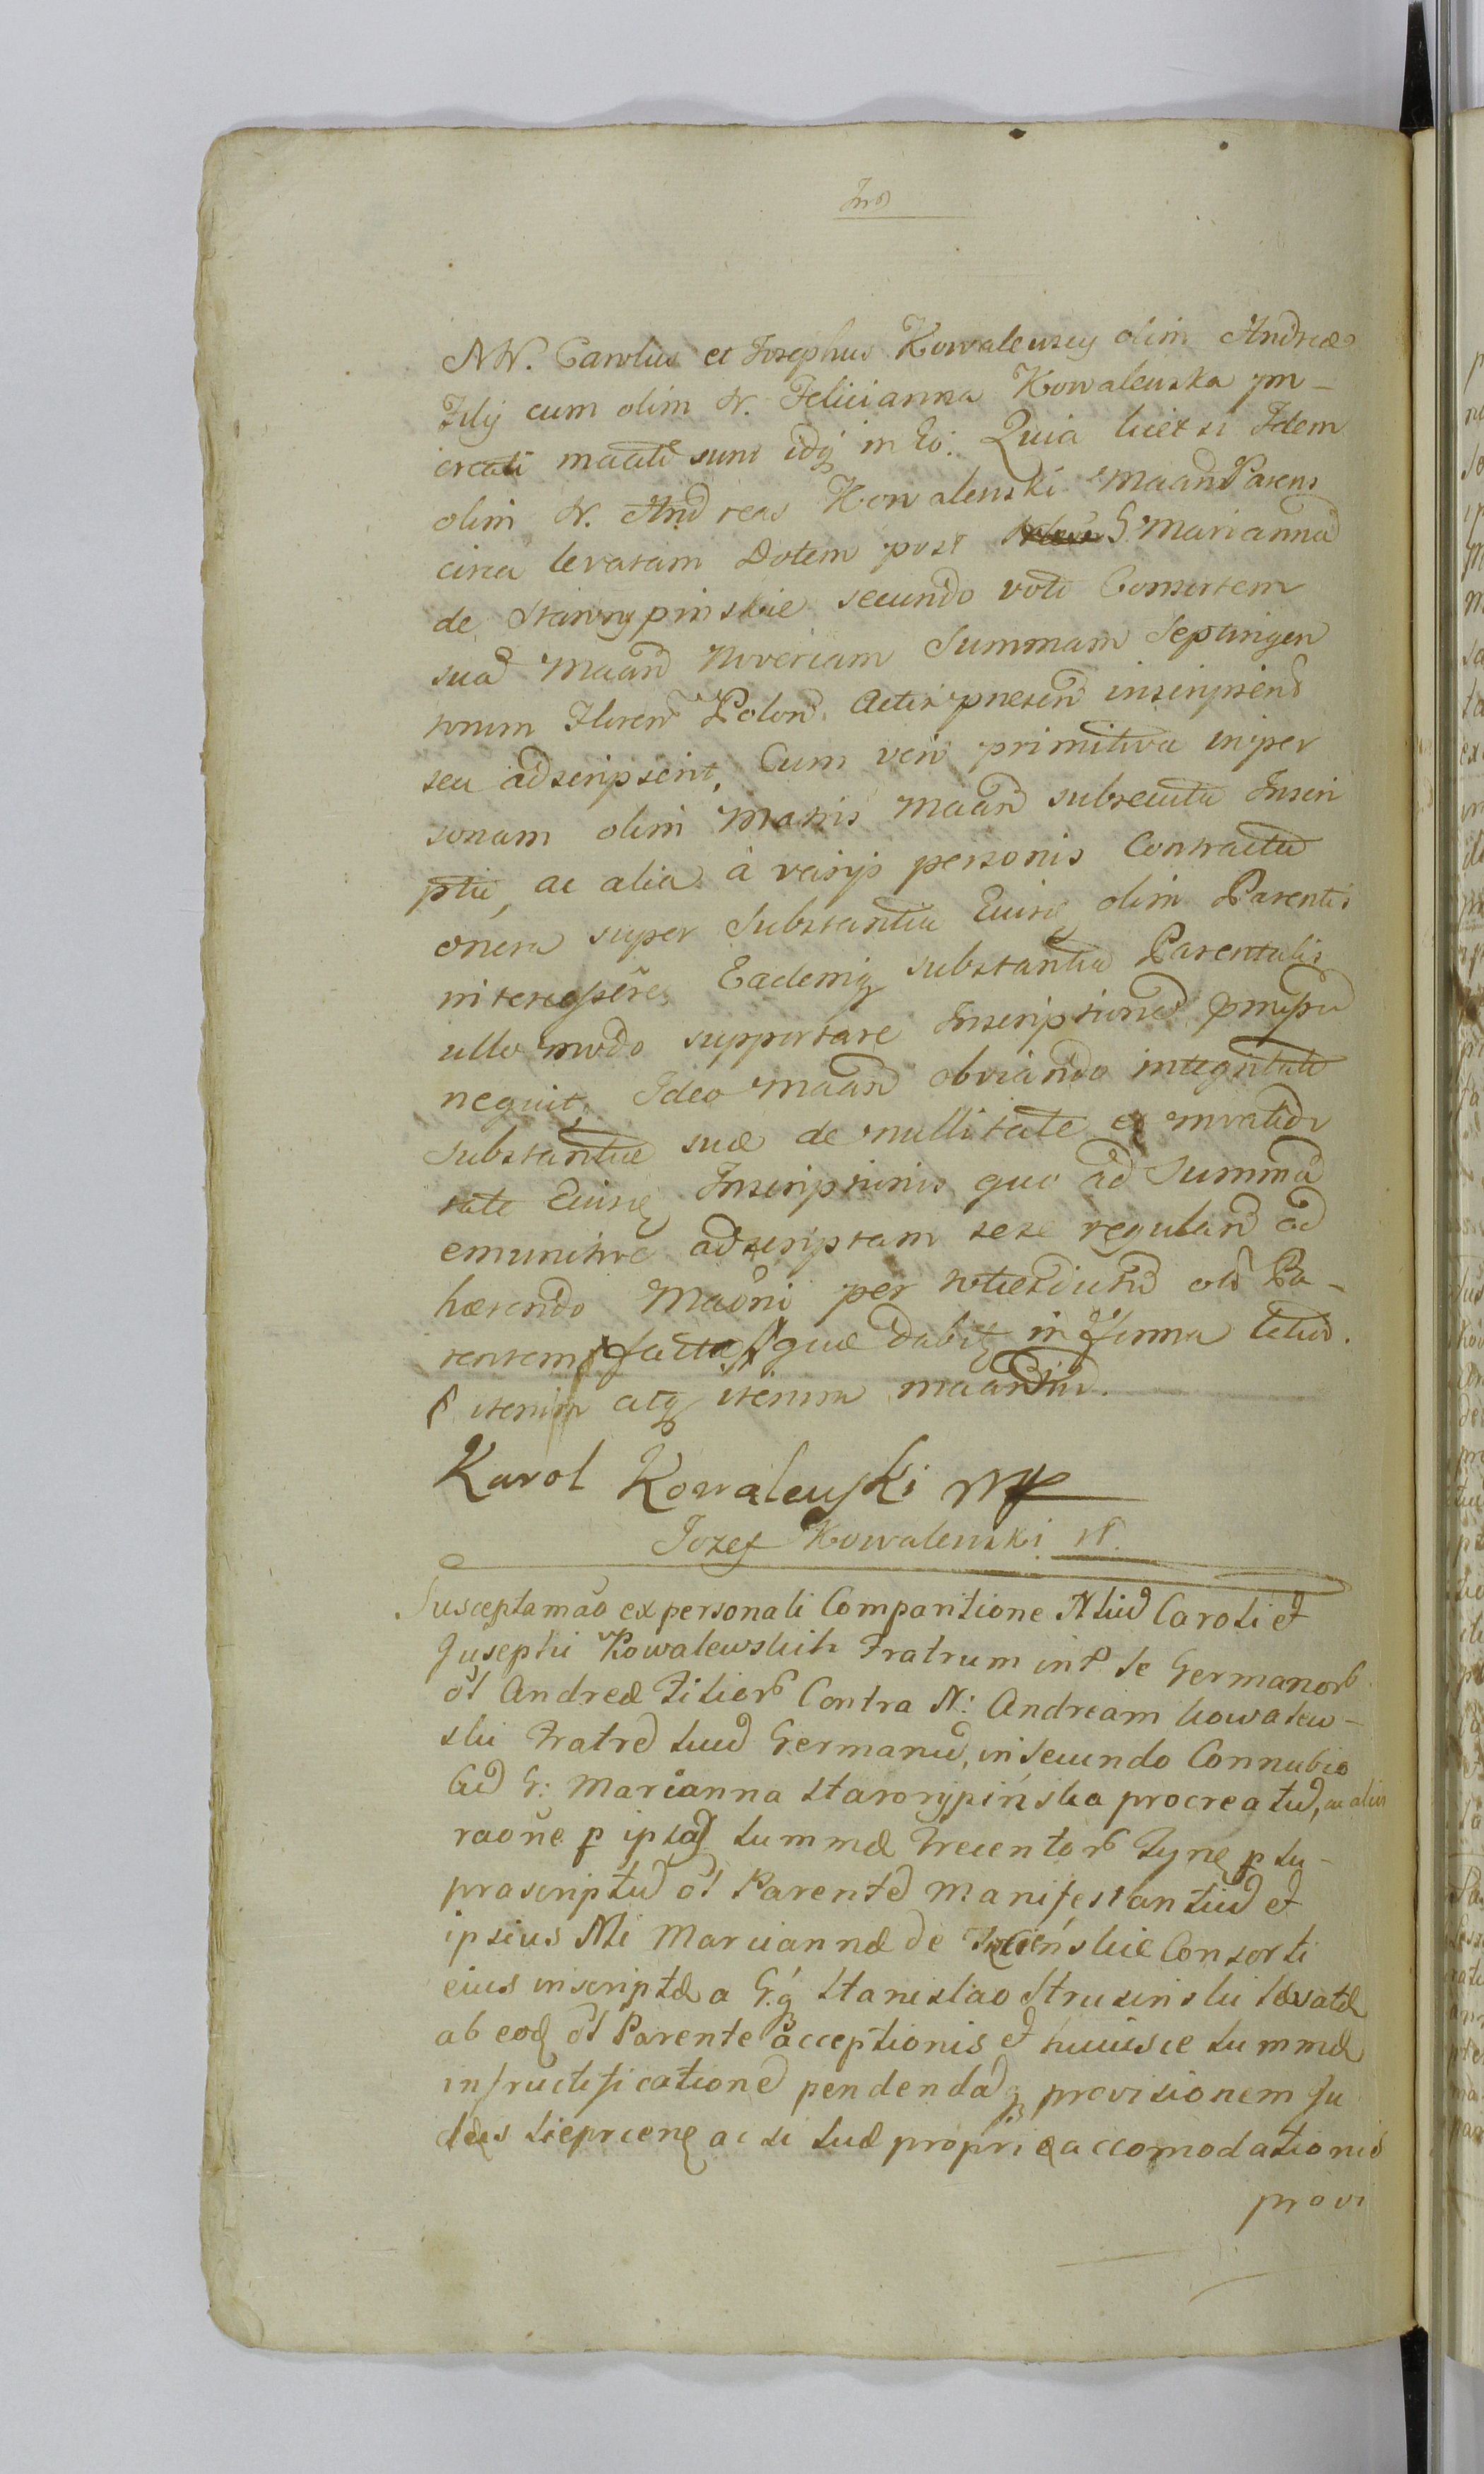 NN. Carolus et Josephus Kowalewscy olim Andreæ
Filij cum olim N. Felicianna Kowalewska pro-
creati maãti sunt idq in Eo: Quia licet si Idem
olim N. Andreas Kowalewski Maañd Parens
circa levatam Dotem post G. Mariannã
de Starorypinskie secundo voto Consortem
suã Maand Noveriam Summam Septingen
torum Floren Polon Actis præsen inscripsent
seu adscripsent, Cum vero primitiva in per
sonam olim Matris Maand subsecuta Inscri
ptio, ac alia à varijs personis Contracta
onera super Substantia Eiusq olim Parentis
intercessere, Eademq substantia Parentalis
ullo modo supportare Inscriptione præfata
nequit, Ideo Maand obviando integritati
substantiæ suæ de nullitate et invalidi
tate Eiusq Inscriptionis quo ad Summã
emunitive adscriptam sese reguland ad
hærendo Maõni per olim Pa-
rentem factæ quæ dabitq in Forma
iterum atq iterum maand.
Karol Kowalewski mp
Jozef Kowalewski
Suscepta mão ex personali Comparitione Nliũ Caroli et
Josephi Kowalewskich Fratrum int se Germanor
ol Andreæ Filior Contra N: Andream Kowalew-
ski Fratre suũ Germanũ, in secundo Connubio
Cũ G: Marianna Starorypińska procreatũ, ac alios
raõne p ipsã summæ Trecentor Tynf p su-
prascriptũ ol Parente Manifestantiũ et
ipsius Nli Mariannæ de Consorti
eius inscriptæ a G.q Stanislao Strusinski levatæ
ab eod ol Parente acceptionis et huiusce summæ
infructificatione pendendãq provisionem Ju
dæis ac si suæ propriæ accomodationis
provi